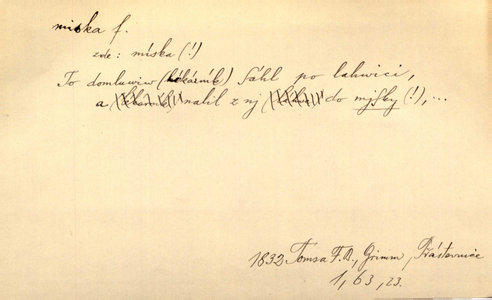 miska f.
zde: míska (!)
To domluwiw (lékárník) sáhl po lahwici,
a nalil z nj do mjsky (!), ...
1832 Tomsa F. B., Grimm, Přástewnice
1, 63, 23.